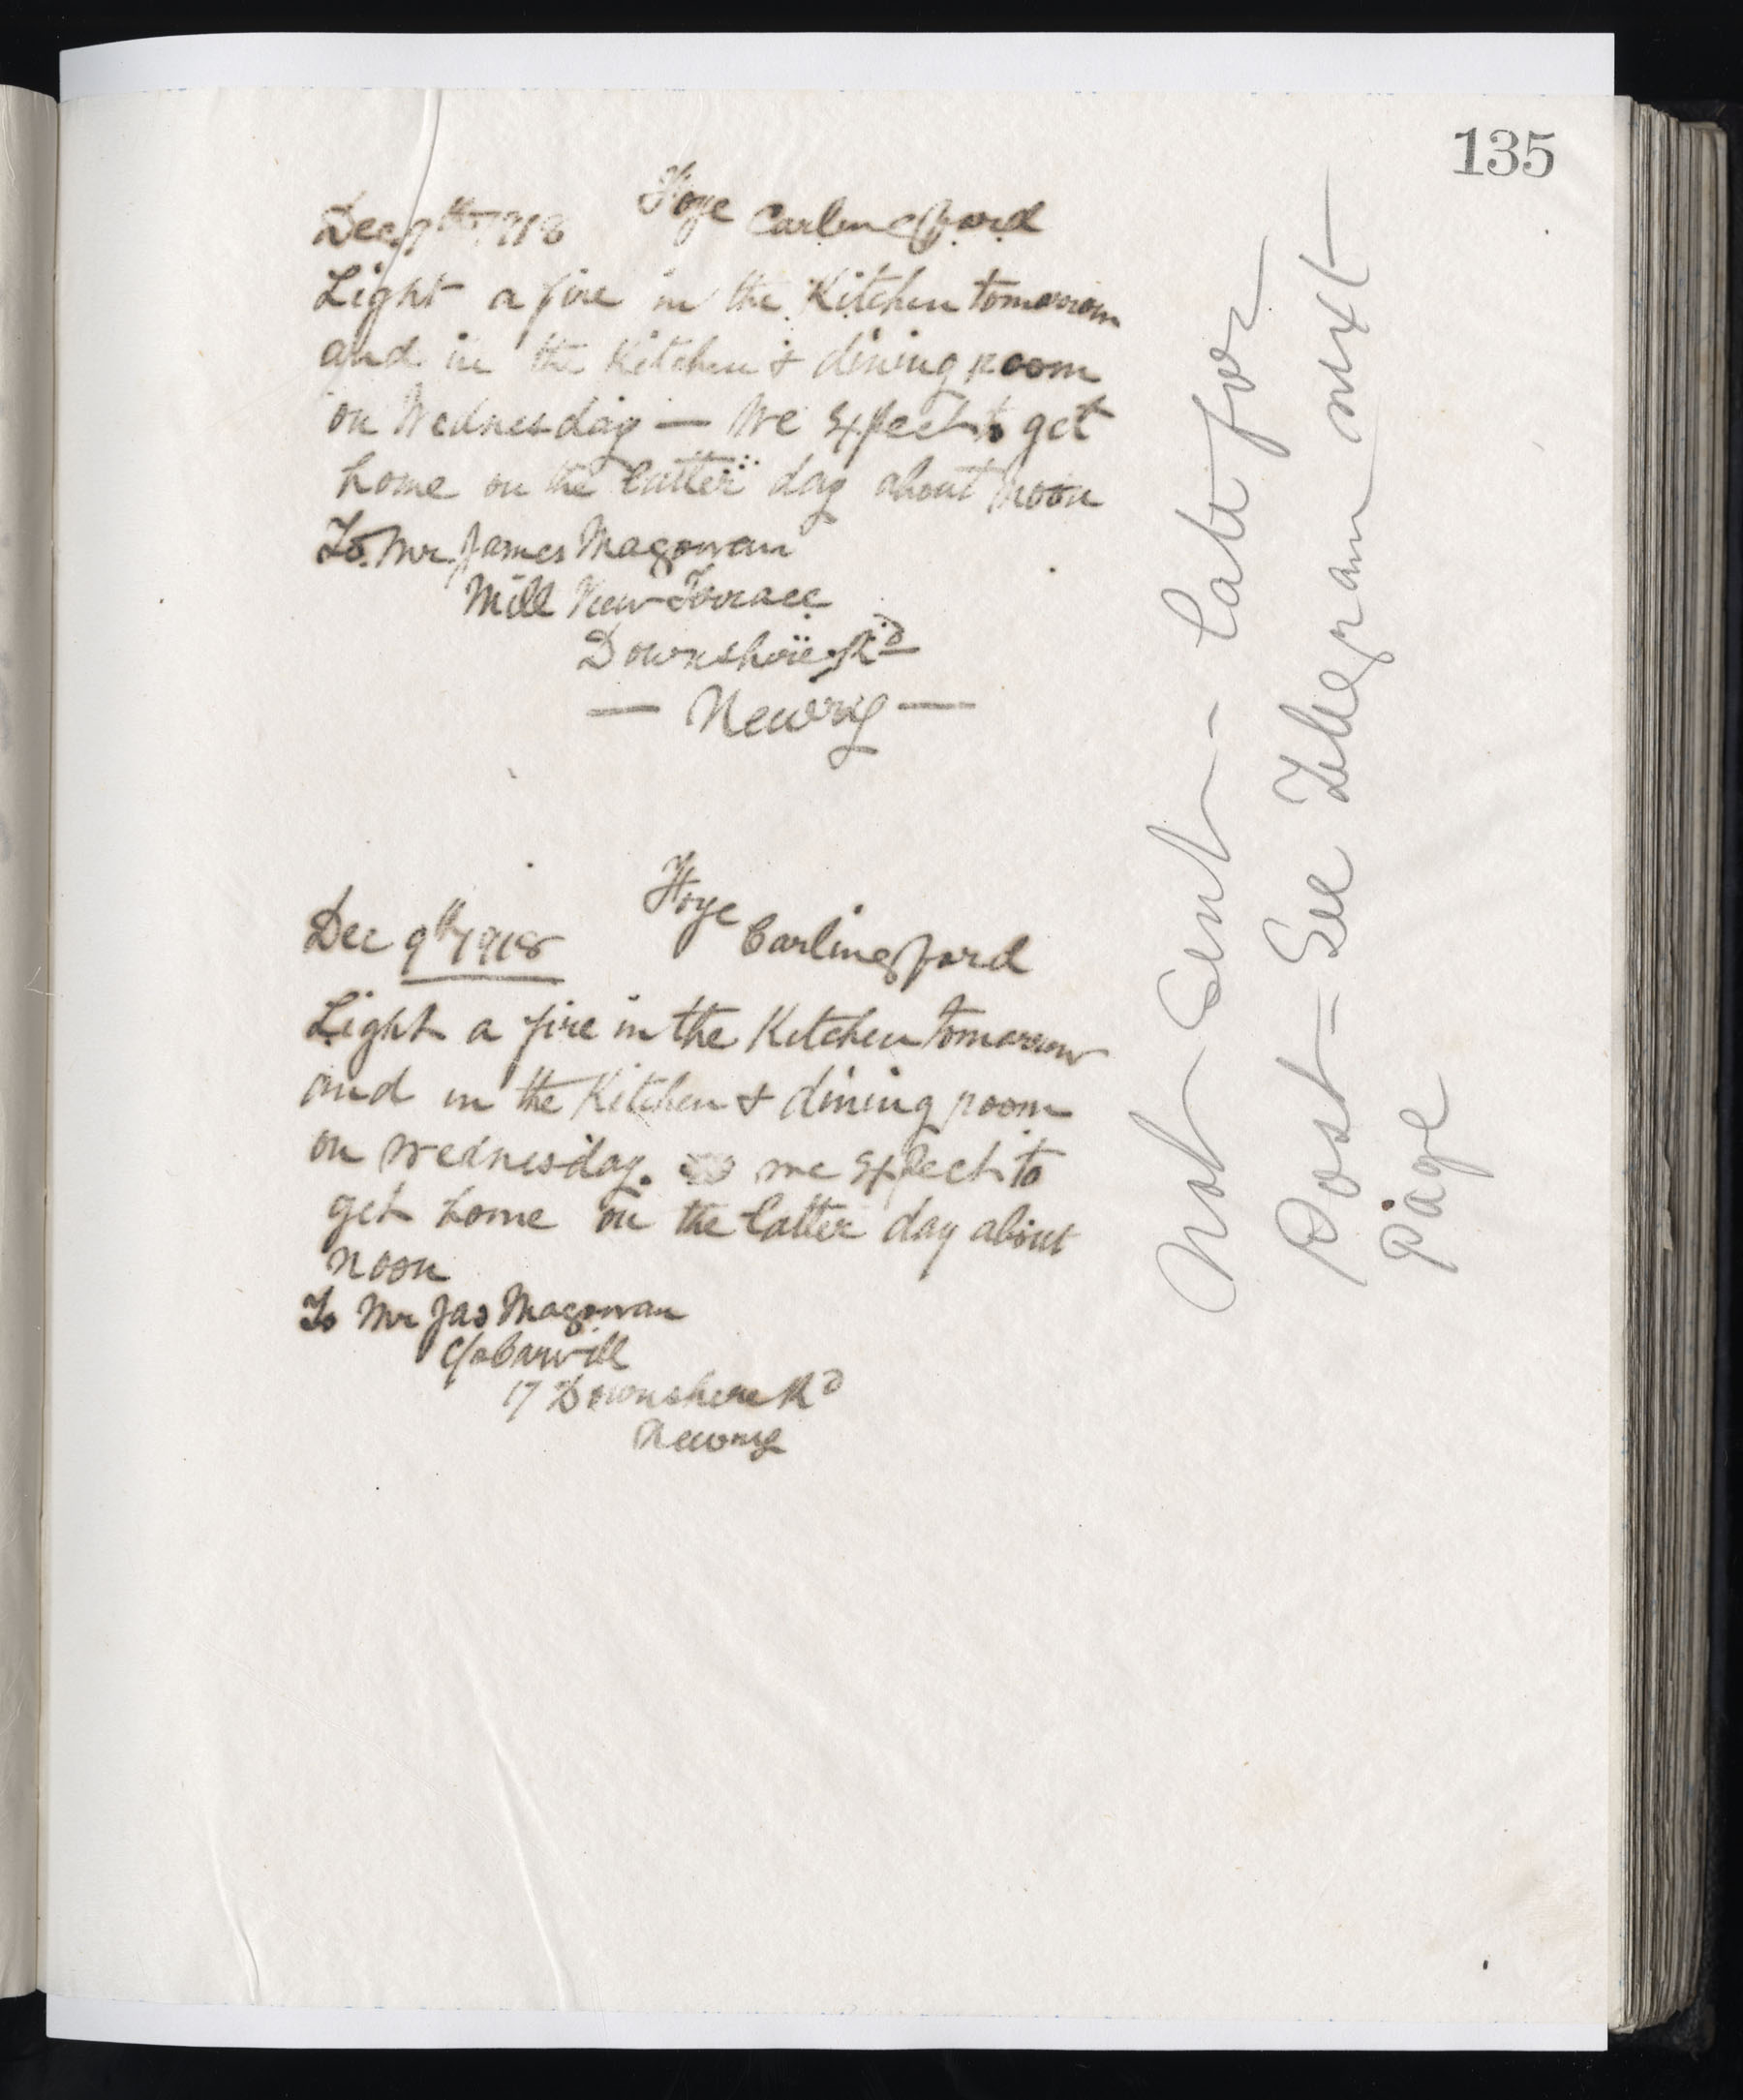 135
Dec. 9th 1918 Hoye Carlingford
Light a fire in the Kitchen tomorrow
and in the Kitchen & dining room
on Wednesday — We expect to get
home on the latter day about noon
To Mr James Magowan
Mill View Terrace
Downshire Rd
— Newry —
Dec 9th 1918 Hoye Carlingford
Light a fire in the Kitchen tomorrow
and in the Kitchen & dining room
on Wednesday. we expect to
get home on the latter day about
noon
To Mr Jas Magowan
c/o Carvill
17 Downshire Rd
Newry
Not Sent - late for
Post = See Telegram next
Page